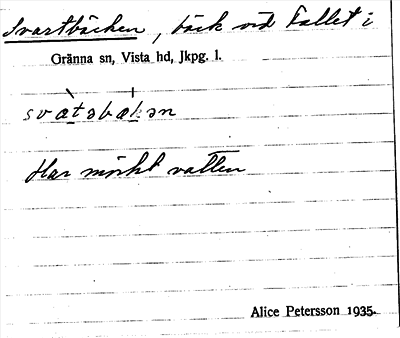 Svartbäcken, bäck vid Fallet i
Gränna sn, Vista hd, Jkpg. l.
svàtəbækən
Har mörkt vatten
Alice Petersson 1935.